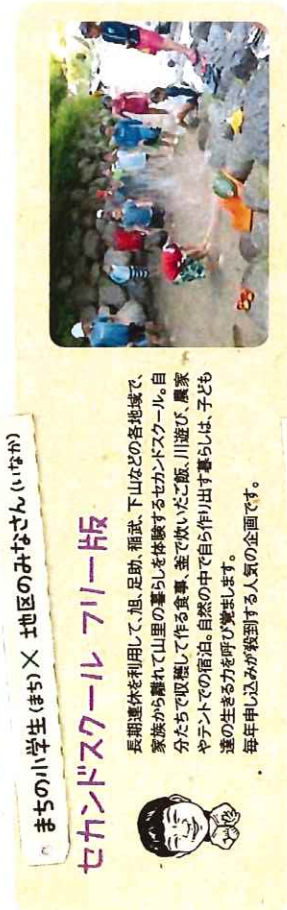 まちの小学生(まち)× 地区のみなさん(いなか)
セカンドスクール フリー版
長期連休を利用して、旭、足助、稲武、下山などの各地域で、
家族から離れて山里の暮らしを体験するセカンドスクール。自
分たちで収穫して作る食事、釜で炊いたご飯、川遊び、農家
やテントでの宿泊。自然の中で自ら作り出す暮らしは、子ども
達の生きる力を呼び覚まします。
毎年申し込みが殺到する人気の企画です。